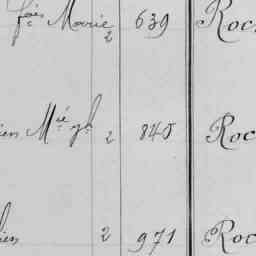 fois Marie 2 639 Roc
ien Mié 2 845 Roc
ien 2 971 Roc